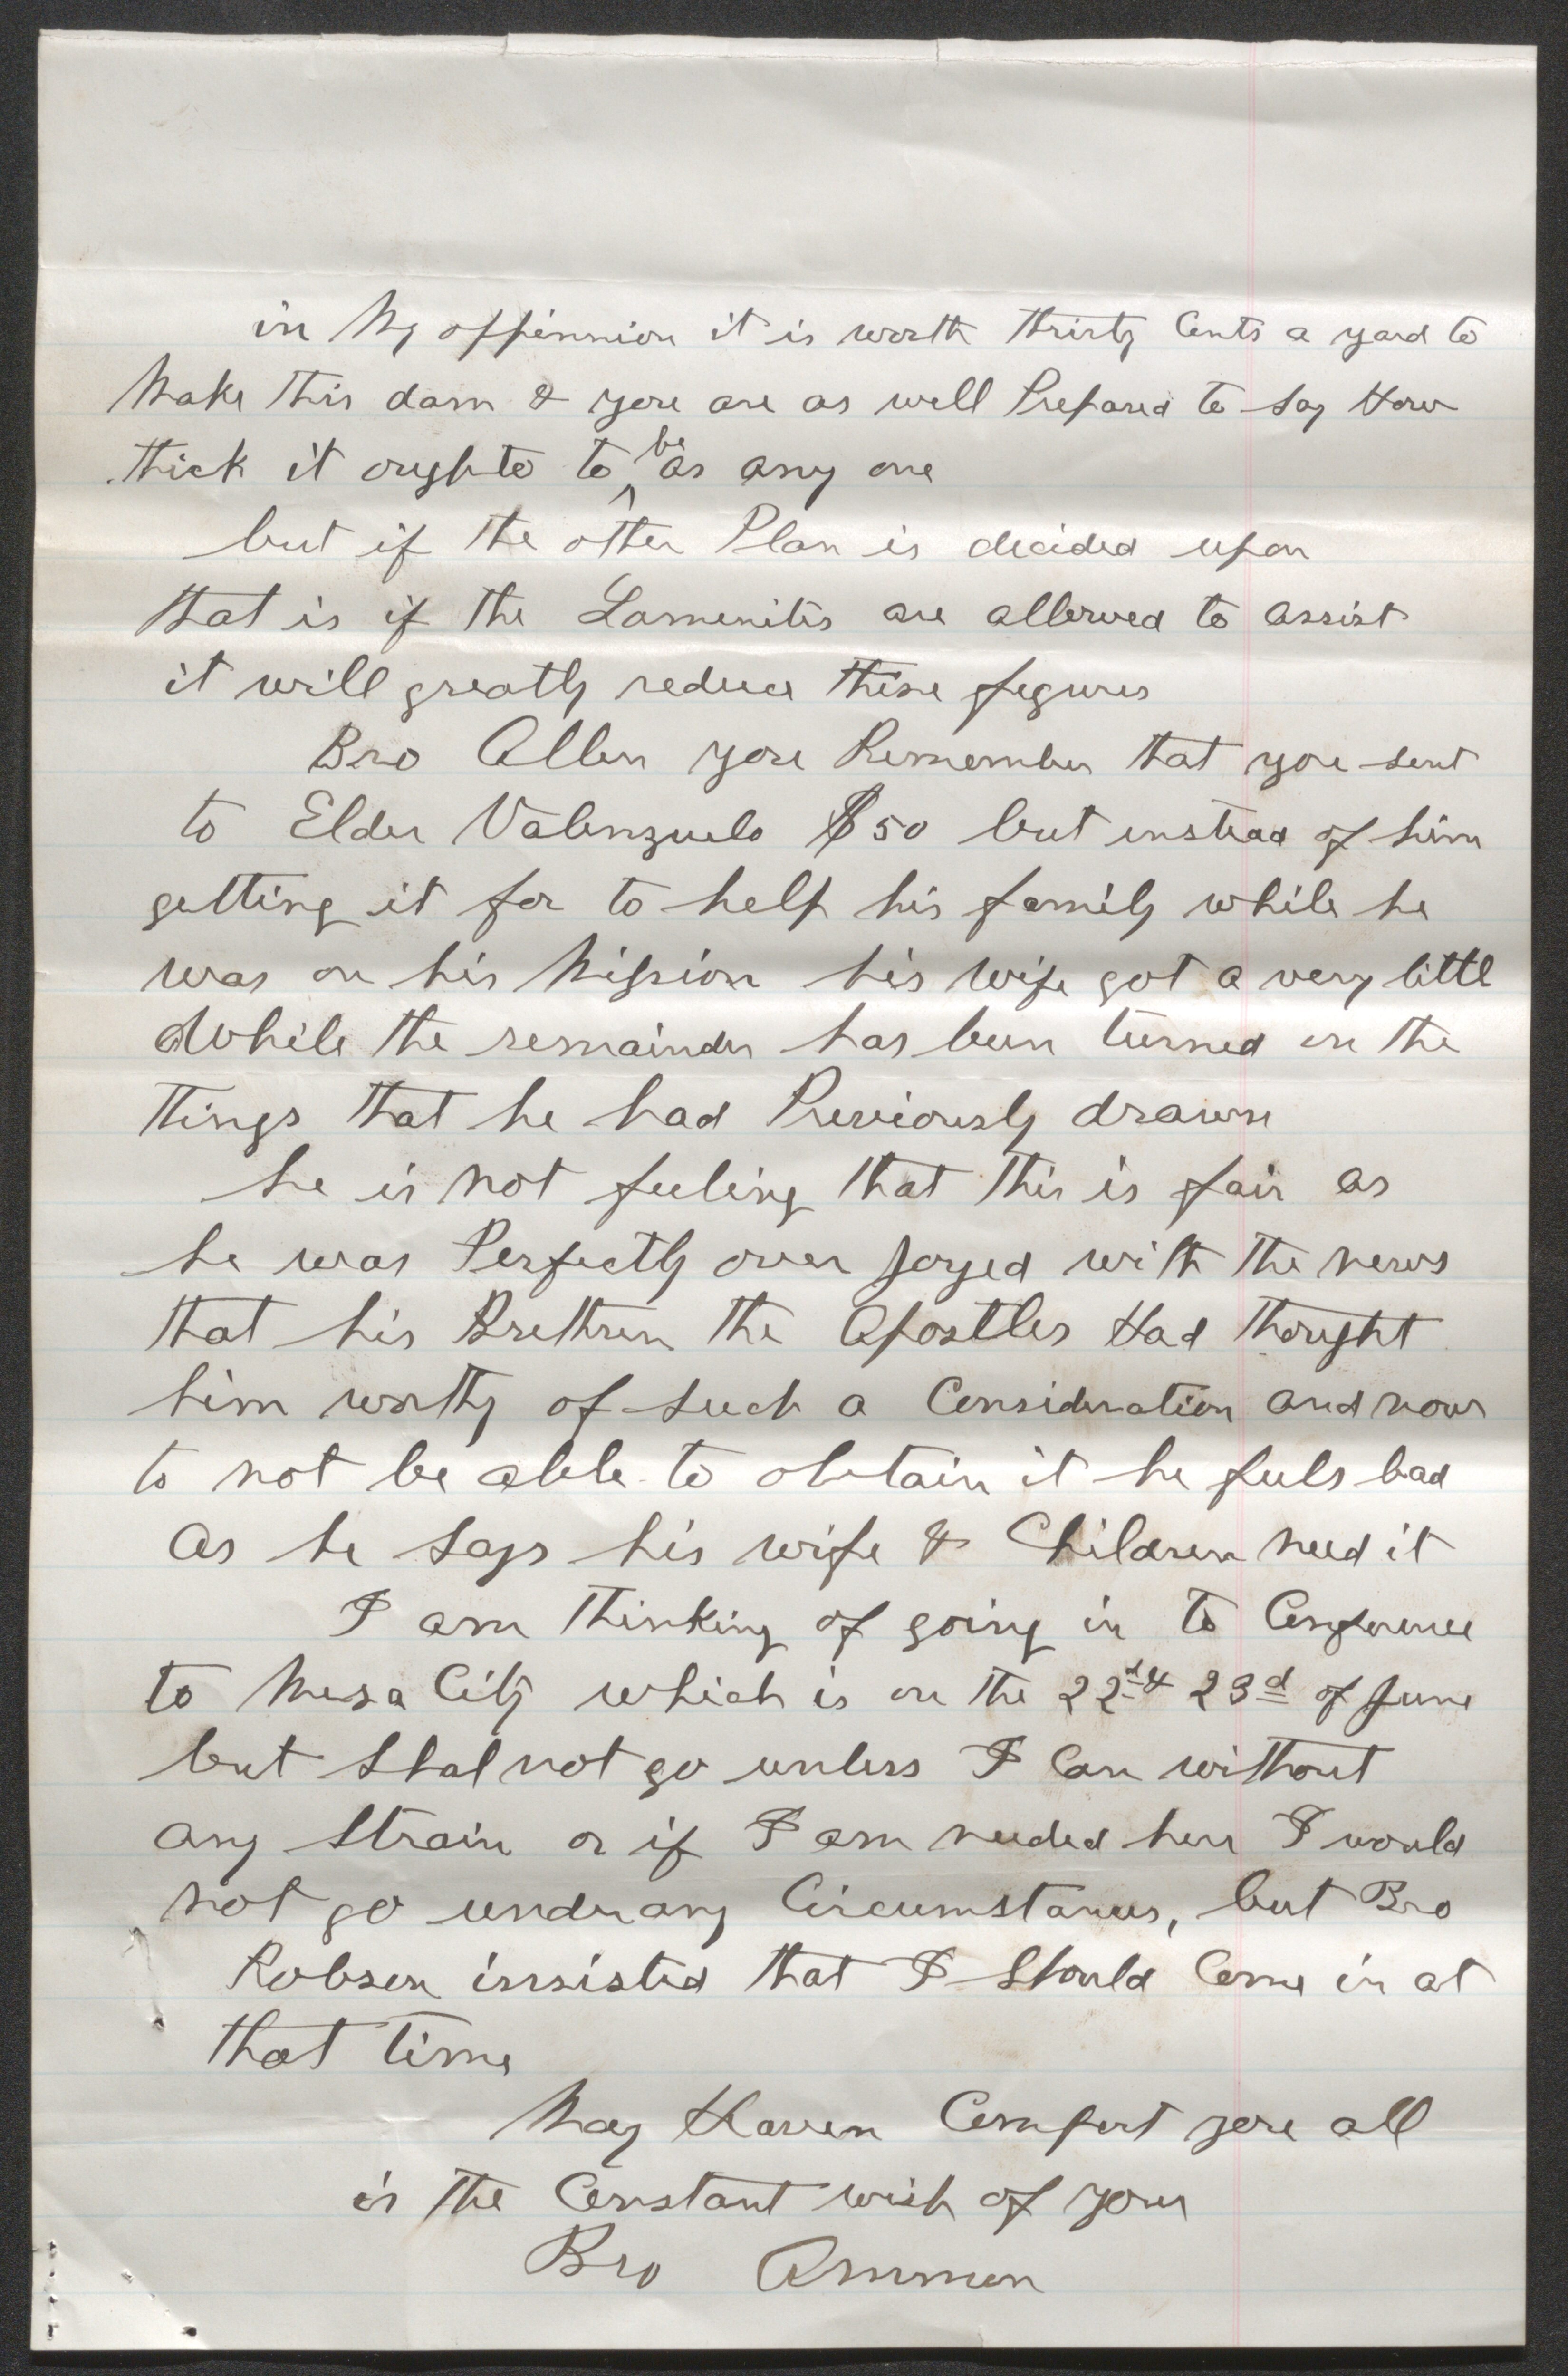 in My oppinnion it is worth thirty Cents a yard to
Make this dam & you are as well Prepared to say How
thick it oughto to be as any one
but if the other Plan is decided upon
that is if the Lamenites are allowed to assist
it will greatly reduce these figures
Bro Allen you Remember that you sent
to Elder Valenzuelo $50 but instead of him
getting it for to help his family while he
was on his Mission his wife got a very littl
While the remainder has been turned on the
things that he had Previously drawn
he is not feeling that this is fair as
he was Perfectly over joyed with the news
that his Brethren the Apostles Had thought
him worthy of such a Consideration and now
to not be able to obtain it he feels bad
as he says his wife & Children need it
I am thinking of going in to Conference
to Mesa City which is on the 22d & 23d of June
but shal not go unless I Can without
any strain or if I am needed here I would
not go under any Circumstances, but Bro
Robson insisted that I should Come in at
that time
May Heaven Comfort you all
is the Constant wish of your
Bro Ammon